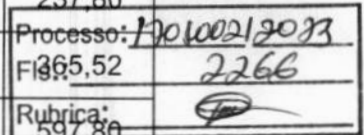 237,80
Processo: 1701002/2023
Fls.: 2266
365,52
Rubrica:
597,80